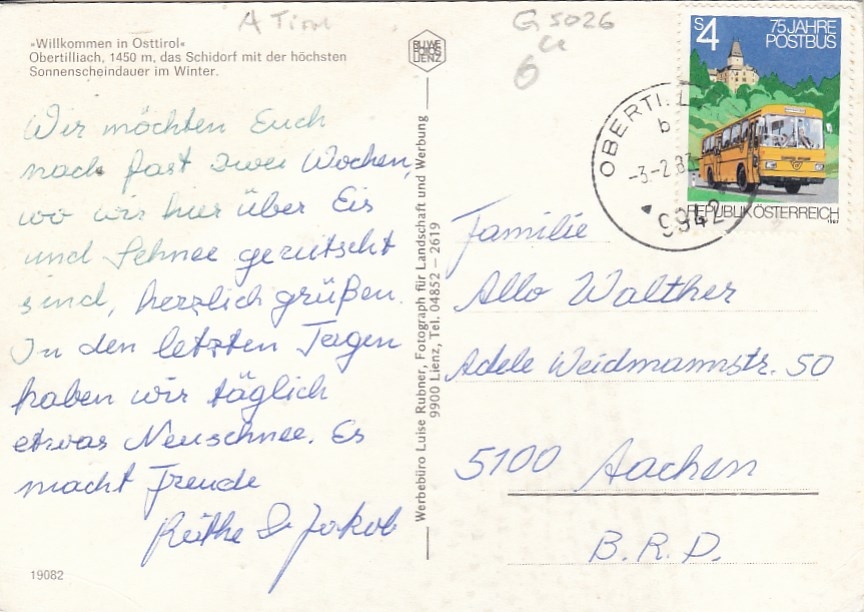 A Tirol
G 5026
6
»Willkommen in Osttirol«
Obertilliach, 1450 m, das Schidorf mit der höchsten
Sonnenscheindauer im Winter.
Wir möchten Euch
nach fast zwei Wochen,
wo wir hier über Eis
und Schnee gerutscht
sind, herzlich grüßen.
In den letzten Tagen
haben wir täglich
etwas Neuschnee. Es
macht Freude
Käthe & Jakob
19082
Werbebüro Luise Rubner, Fotograph für Landschaft und Werbung
9900 Lienz, Tel. 04852 – 2619
S4
75 JAHRE
POSTBUS
REPUBLIK ÖSTERREICH
OBERTI
b
-3.-2.83
9942
Familie
Allo Walther
Adele Weidmannstr. 50
5100 Aachen
B.R.D.